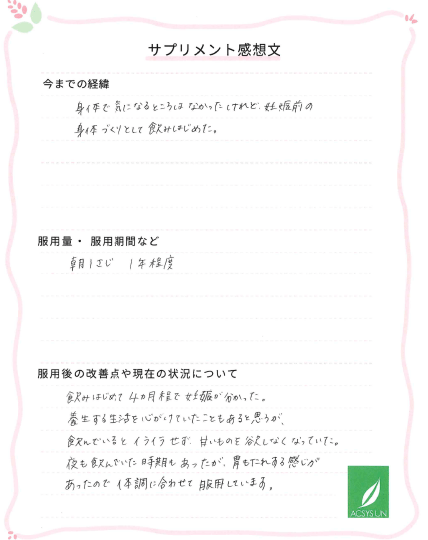 サプリメント感想文
今までの経緯
身体で気になるところは なかったけれど、妊娠前の
身体づくりとして飲みはじめた。
服用量・ 服用期間など
朝1さじ 1年程度
服用後の改善点や現在の状況について
飲みはじめて 4カ月程で妊娠が分かった。
養生する生活を心がけていたこともあると思うが、
飲んでいると イライラせず、甘いものを欲しなくなっていた。
夜も飲んでいた時期も あったが、胃もたれする感じが
あったので 体調に合わせて 服用しています。
ACSYS UN